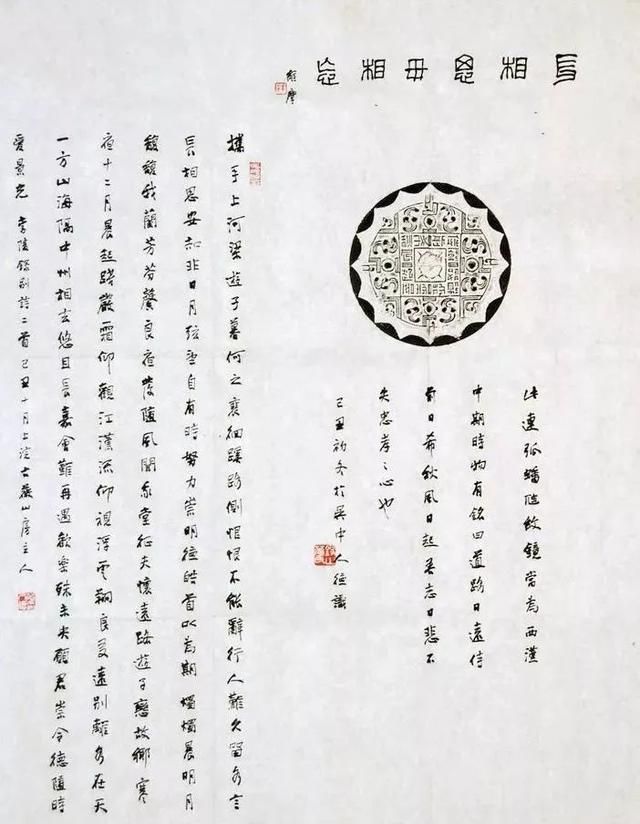 長相思毋相忘
此連弧蟠螭紋鏡當為西漢
中期時物有銘曰道路日遠侍
前日希秋風日起吾志日悲不
失忠孝之心也
己丑初冬於吳中人德識
攜手上河梁遊子暮何之裵徊蹊路側悢悢不能辭行人難久留各言
長相思安知非日月弦望自有時努力崇明德皓首以為期燭燭晨明月
馥馥我蘭芳芬馨良夜發隨風聞我堂征夫懷遠路遊子戀故鄉寒
夜十二月晨起踐嚴霜仰觀江漢流仰視浮雲翔良友遠別離各在天
一方山海隔中州相去悠且長嘉會難再遇歡樂殊未央願君崇令德隨時
愛景光 李陵錄別詩二首 己丑十月上浣 山房主人